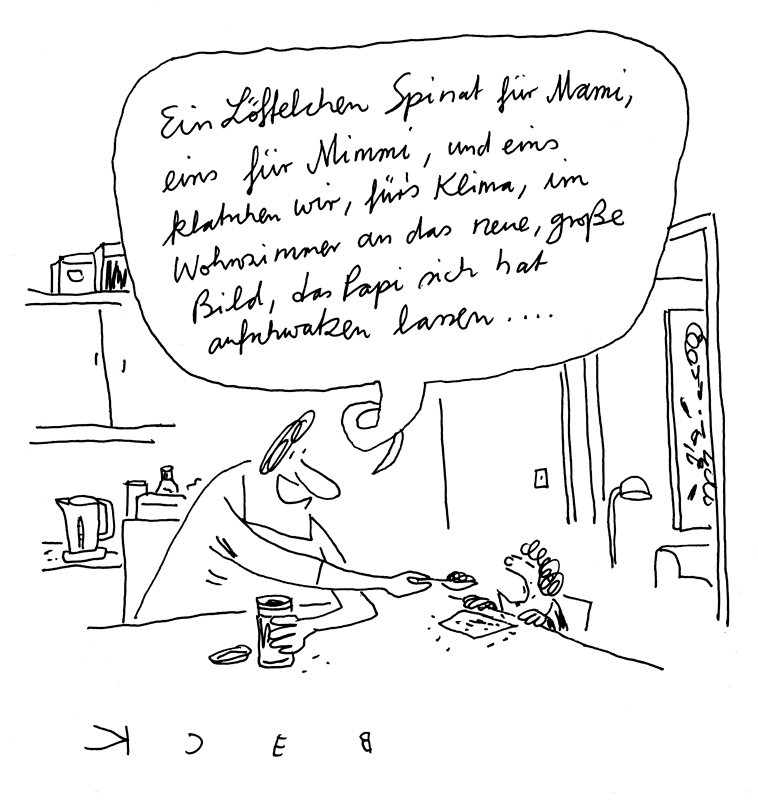 Ein Löffelchen Spinat für Mami,
eins für Mimmi, und eins
klatschen wir, für's Klima, im
Wohnzimmer an das neue, große
Bild, das Papi sich hat
aufschwatzen lassen....
BECK